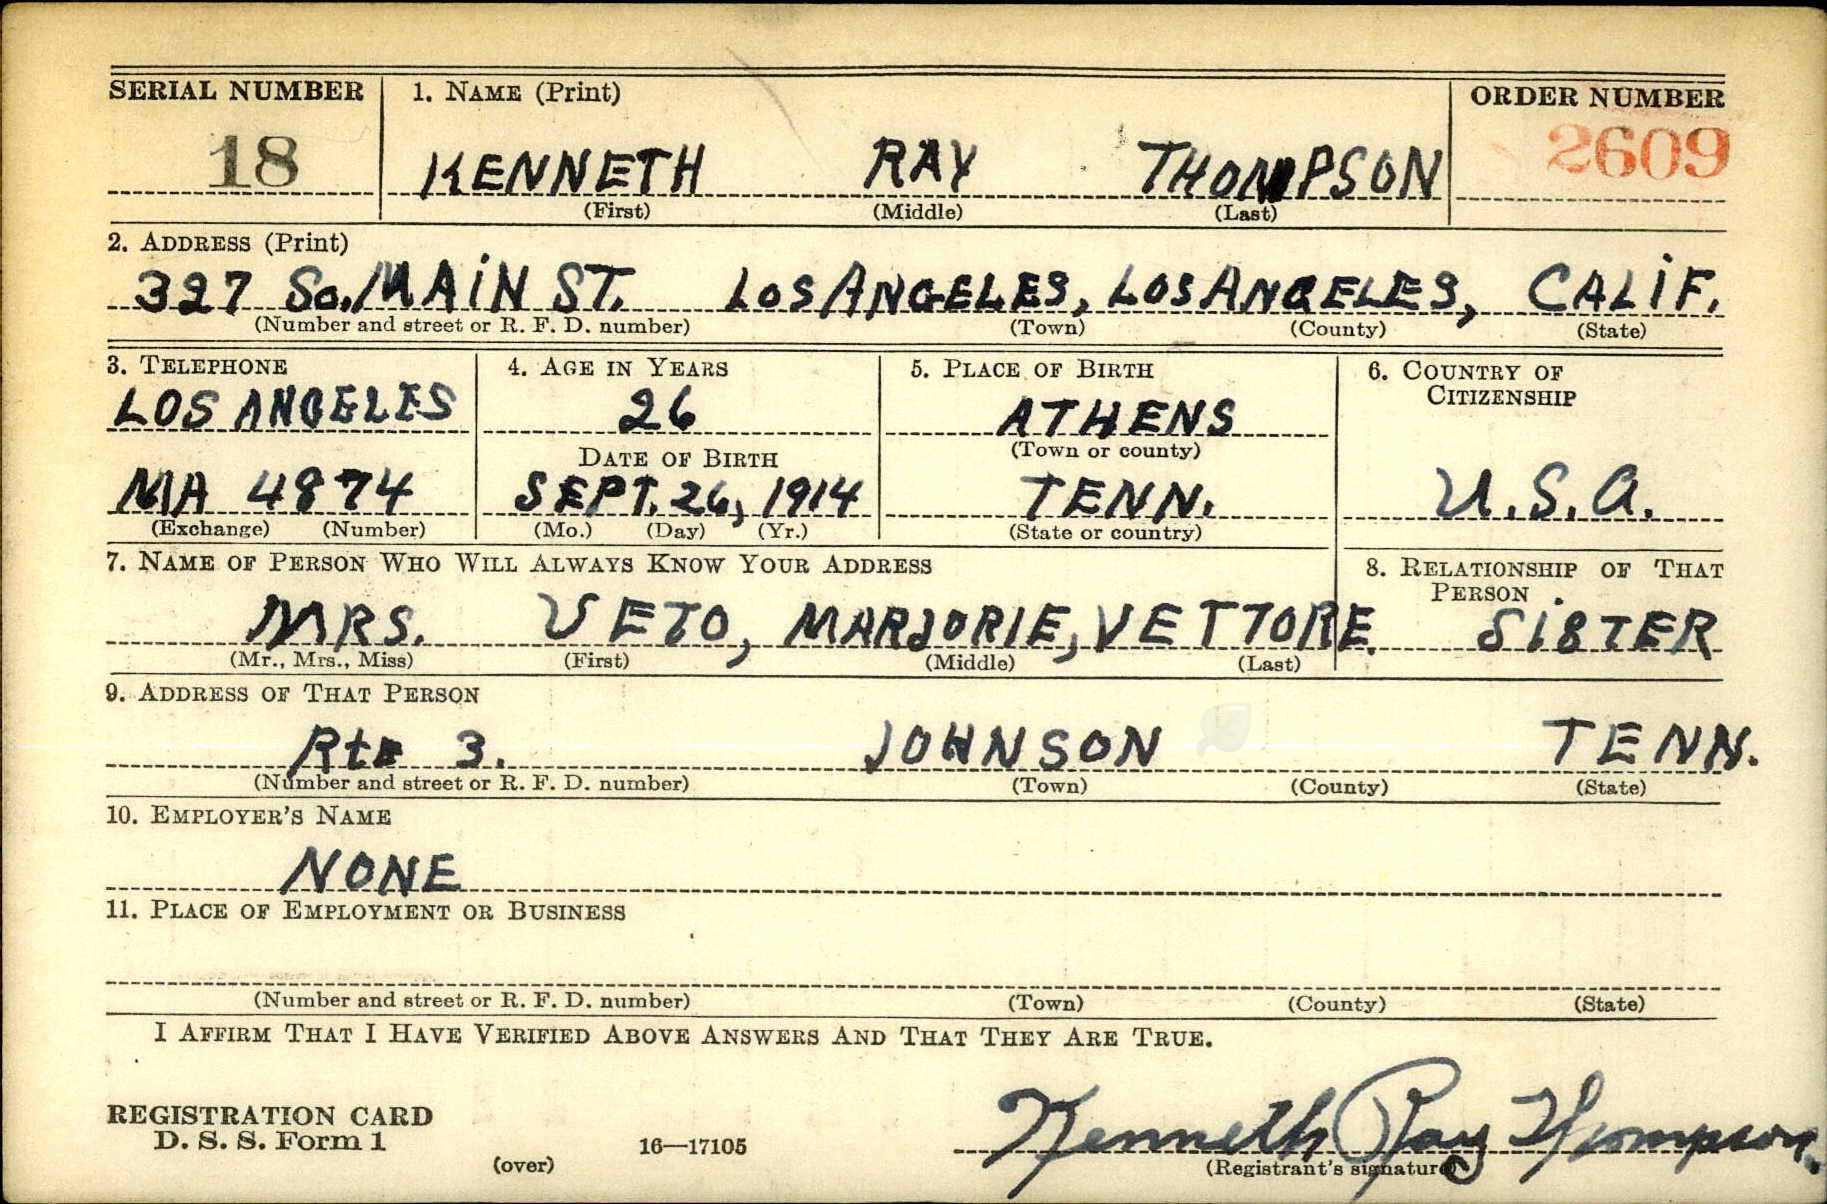 SERIAL NUMBER 1. NAME (Print) ORDER NUMBER
18 KENNETH RAY THOMPSON 2609
(First) (Middle) (Last)
2. ADDRESS (Print)
327 So. MAIN ST. LOS ANGELES, LOS ANGELES, CALIF.
(Number and street or R. F. D. number) (Town) (County) (State)
3. TELEPHONE 4. AGE IN YEARS 5. PLACE OF BIRTH 6. COUNTRY OF
CITIZENSHIP
LOS ANGELES 26 ATHENS
DATE OF BIRTH (Town or county)
MA 4874 SEPT. 26, 1914 TENN. U.S.A.
(Exchange) (Number) (Mo.) (Day) (Yr.) (State or country)
7. NAME OF PERSON WHO WILL ALWAYS KNOW YOUR ADDRESS 8. RELATIONSHIP OF THAT
PERSON
MRS. VETO, MARJORIE, VETTORE. SISTER
(Mr., Mrs., Miss) (First) (Middle) (Last)
9. ADDRESS OF THAT PERSON
Rte 3. JOHNSON TENN.
(Number and street or R. F. D. number) (Town) (County) (State)
10. EMPLOYER'S NAME
NONE
11. PLACE OF EMPLOYMENT OR BUSINESS
(Number and street or R. F. D. number) (Town) (County) (State)
I AFFIRM THAT I HAVE VERIFIED ABOVE ANSWERS AND THAT THEY ARE TRUE.
REGISTRATION CARD
D. S. S. Form 1 Kenneth Ray Thompson.
(over) 16—17105 (Registrant's signature)